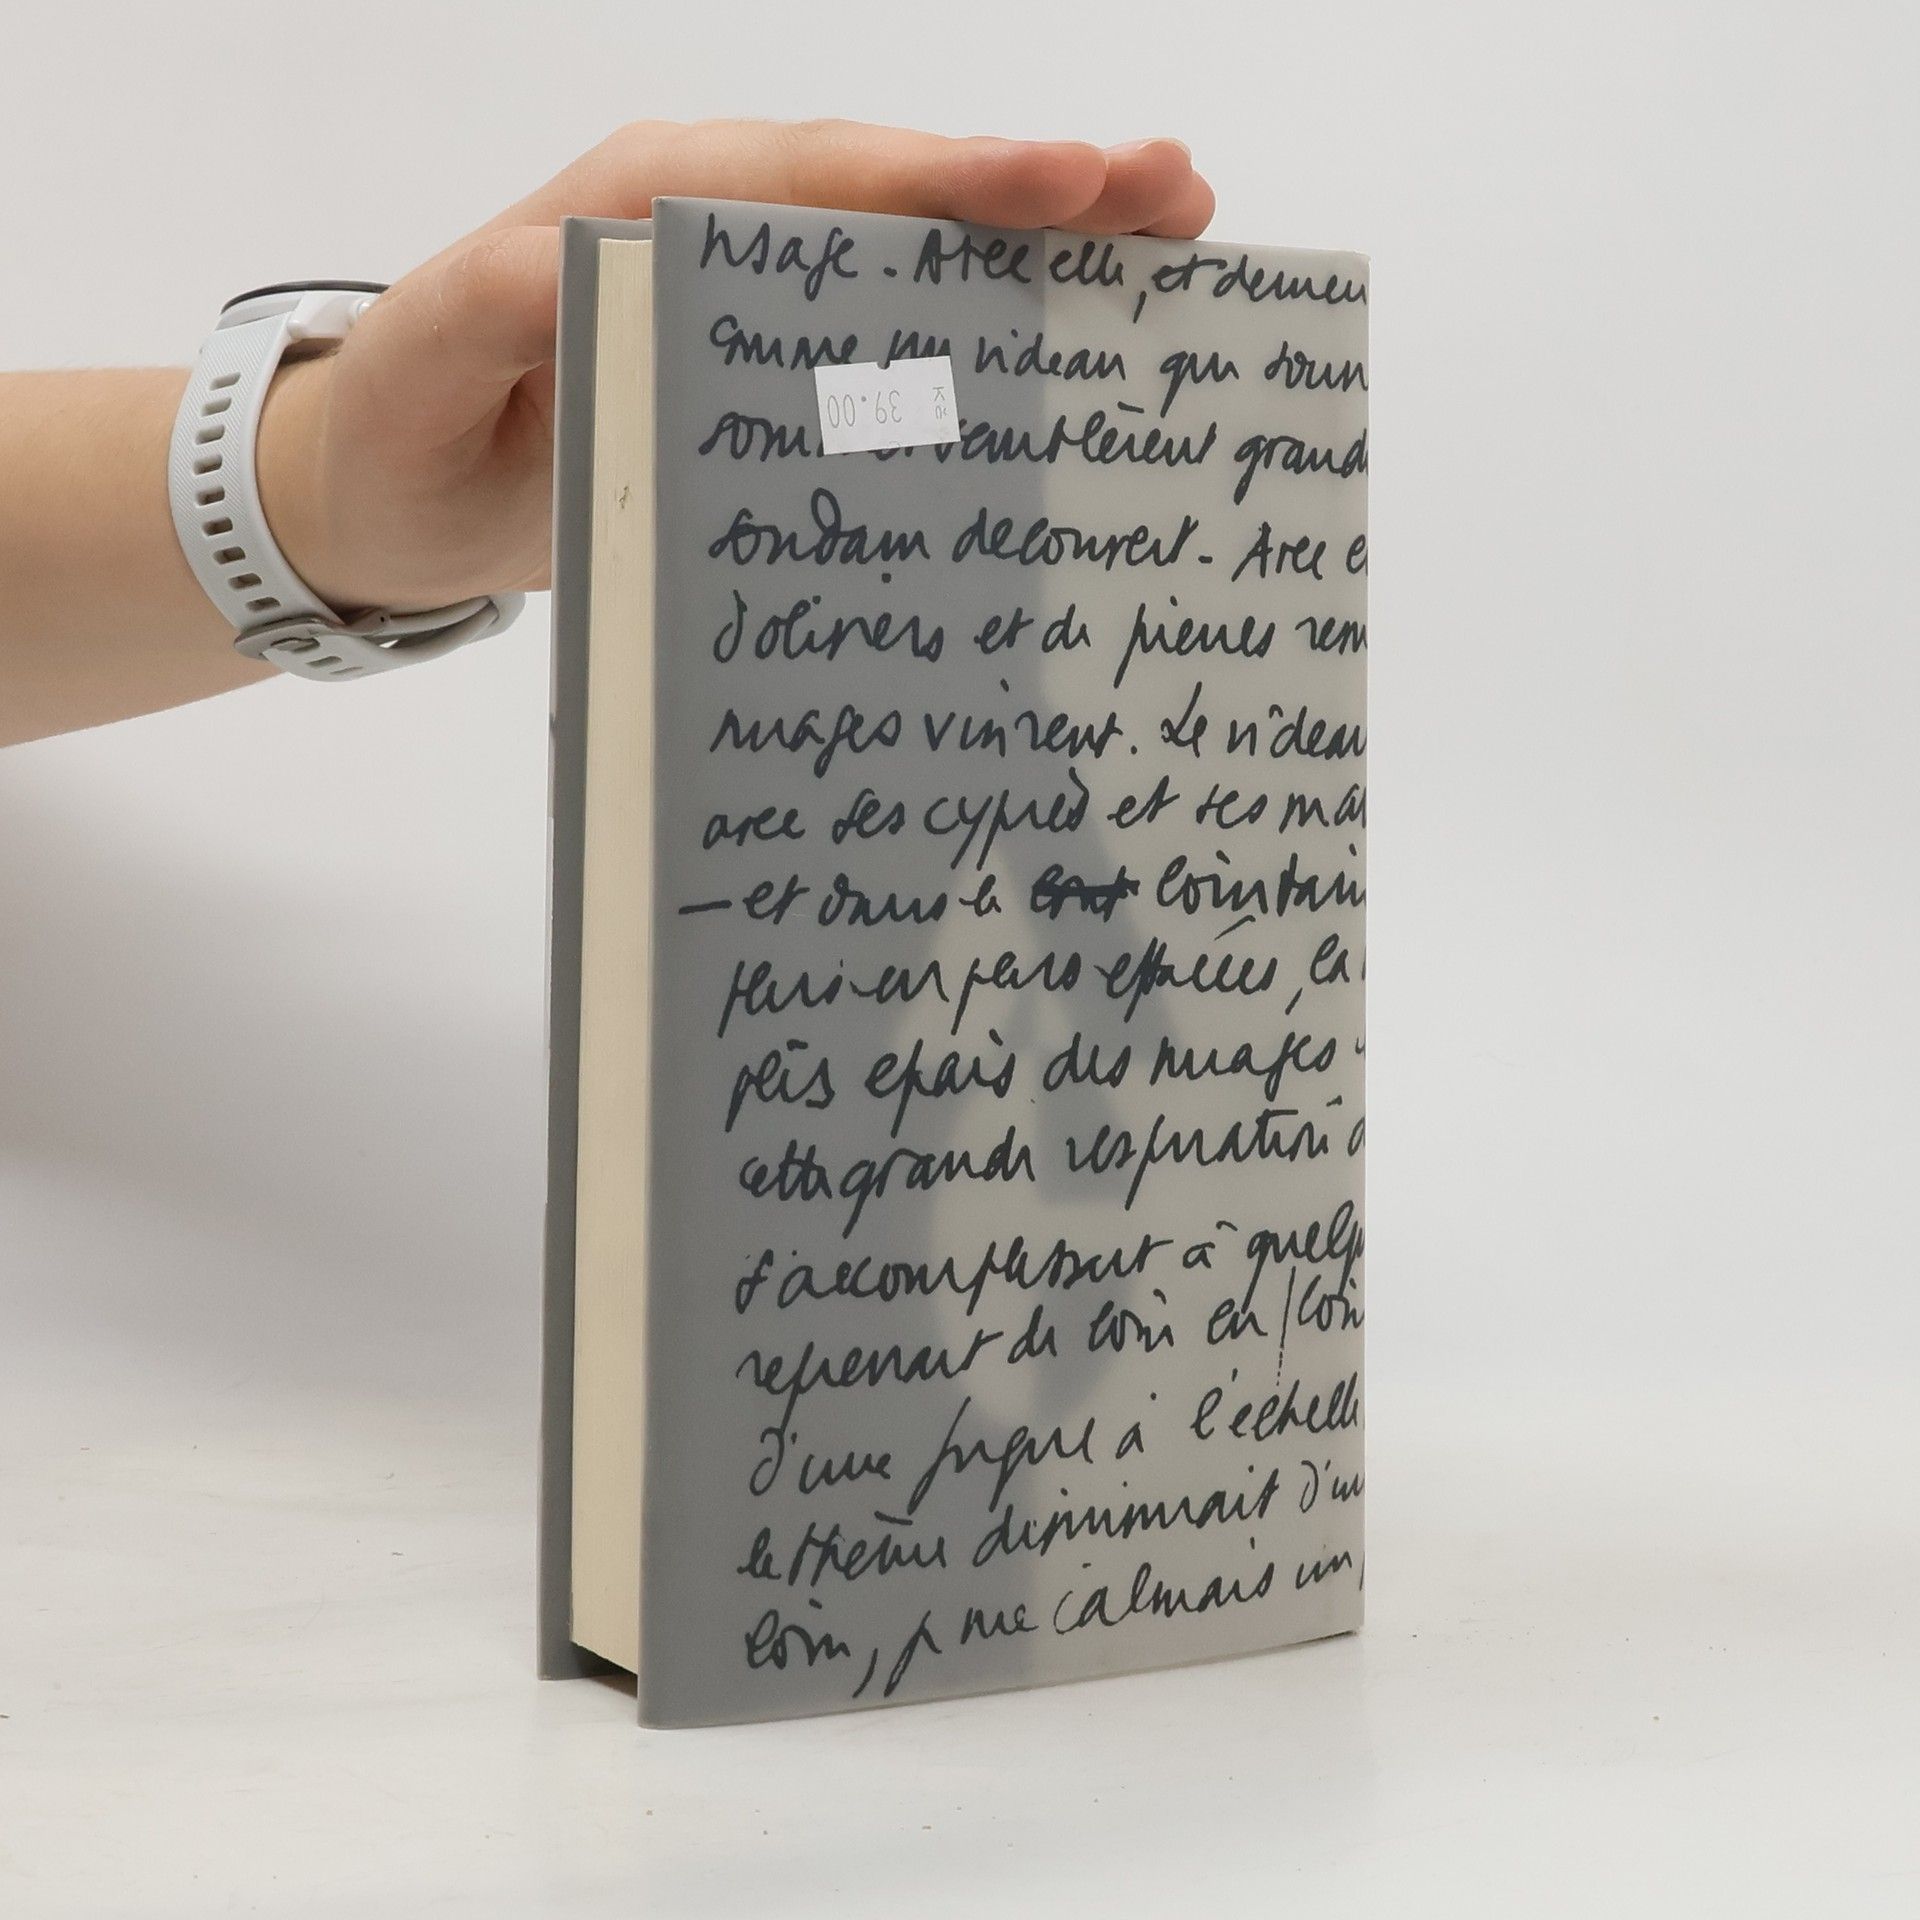 visage. Avec elle, et derrièr
comme un rideau qui s'ouv
som tremblèrent grand
soudain découvert. Avec e
d'oliviers et de pierres rem
nuages vinrent. Le rideau
avec ses cyprès et ses ma
— et dans le lointain
plis épais des nuages
cette grande respiration d
s'accomplissait à quelqu
reprenait de loin en loin
d'une fugue à l'échelle
le thème diminuait d'un
loin, je me calmais un p
Kč
39.00